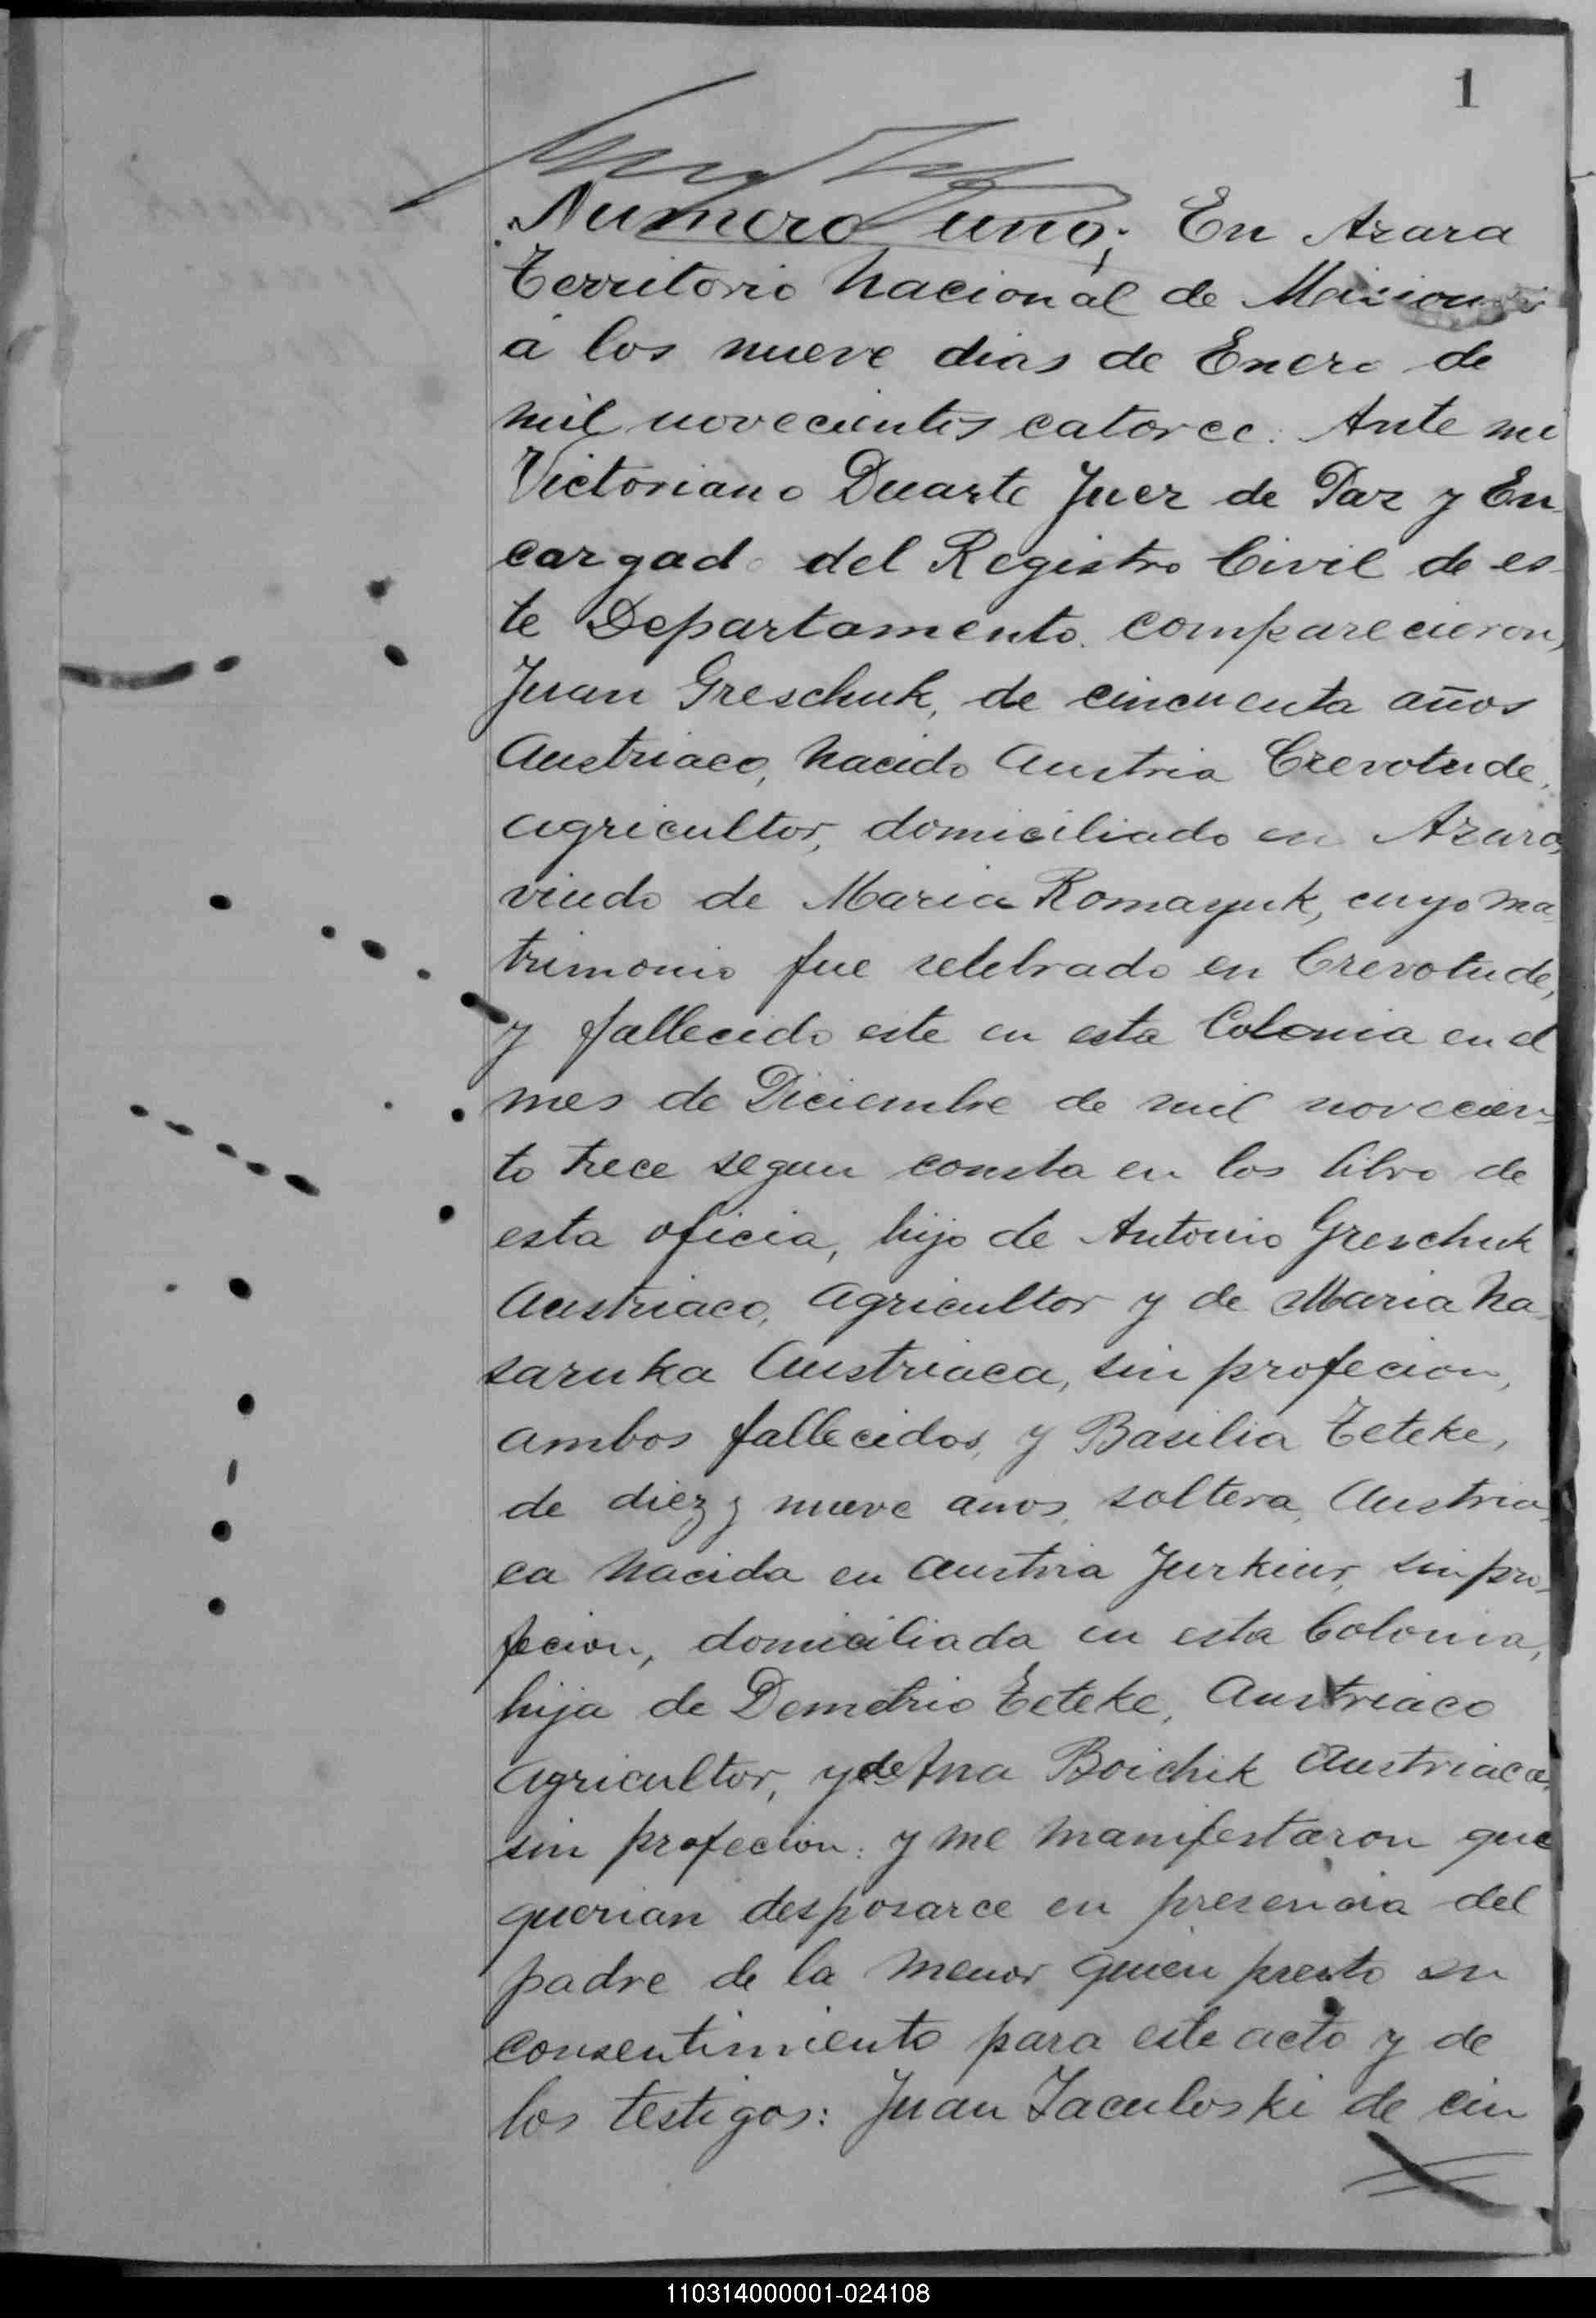 1
Numero uno; En Azara
Territorio Nacional de Misiones
á los nueve dias de Enero de
mil novecientos catorce. Ante mi
Victoriano Duarte Juez de Paz y En
cargado del Registro Civil de es-
te Departamento. comparecieron,
Juan Greschuk, de cincuenta años
Austriaco, nacido Austria Crevotude,
agricultor, domiciliado en Azara,
viudo de Maria Romayuk, cuyo ma
trimonio fue selebrado en Crevotude,
y fallecido este en esta Colonia en el
mes de Diciembre de mil novecien-
to trece segun consta en los libro de
esta oficia, hijo de Antonio Greschuk
Austriaco, agricultor y de Maria Na
saruka Austriaca, sin profecion,
ambos fallecidos, y Basilia Teteke,
de diez y nueve anos, soltera, Austria
ca nacida en Austria Jurkiur, sin pro-
fecion, domiciliada en esta Colonia,
hija de Demetrio Teteke, Austriaco
agricultor, y de Ana Boichik Austriaca,
sin profecion: y me manifestaron que
querian desposarce en presencia del
padre de la menor quien presto su
consentimiento para este acto y de
los testigos: Juan Iaculoski de cin
110314000001-024108